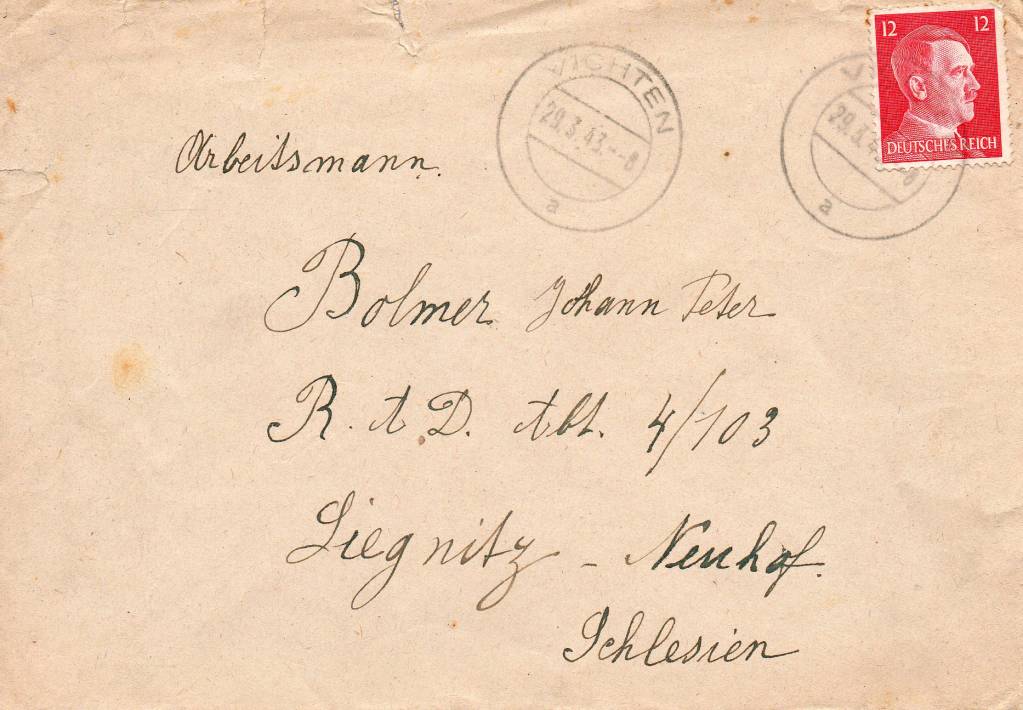 12 12
DEUTSCHES REICH
VICHTEN
29.3.43.--8
a
a
Arbeitsmann.
Bolmer Johann Peter
R.A.D. Abt. 4/103
Liegnitz - Neuhof.
Schlesien